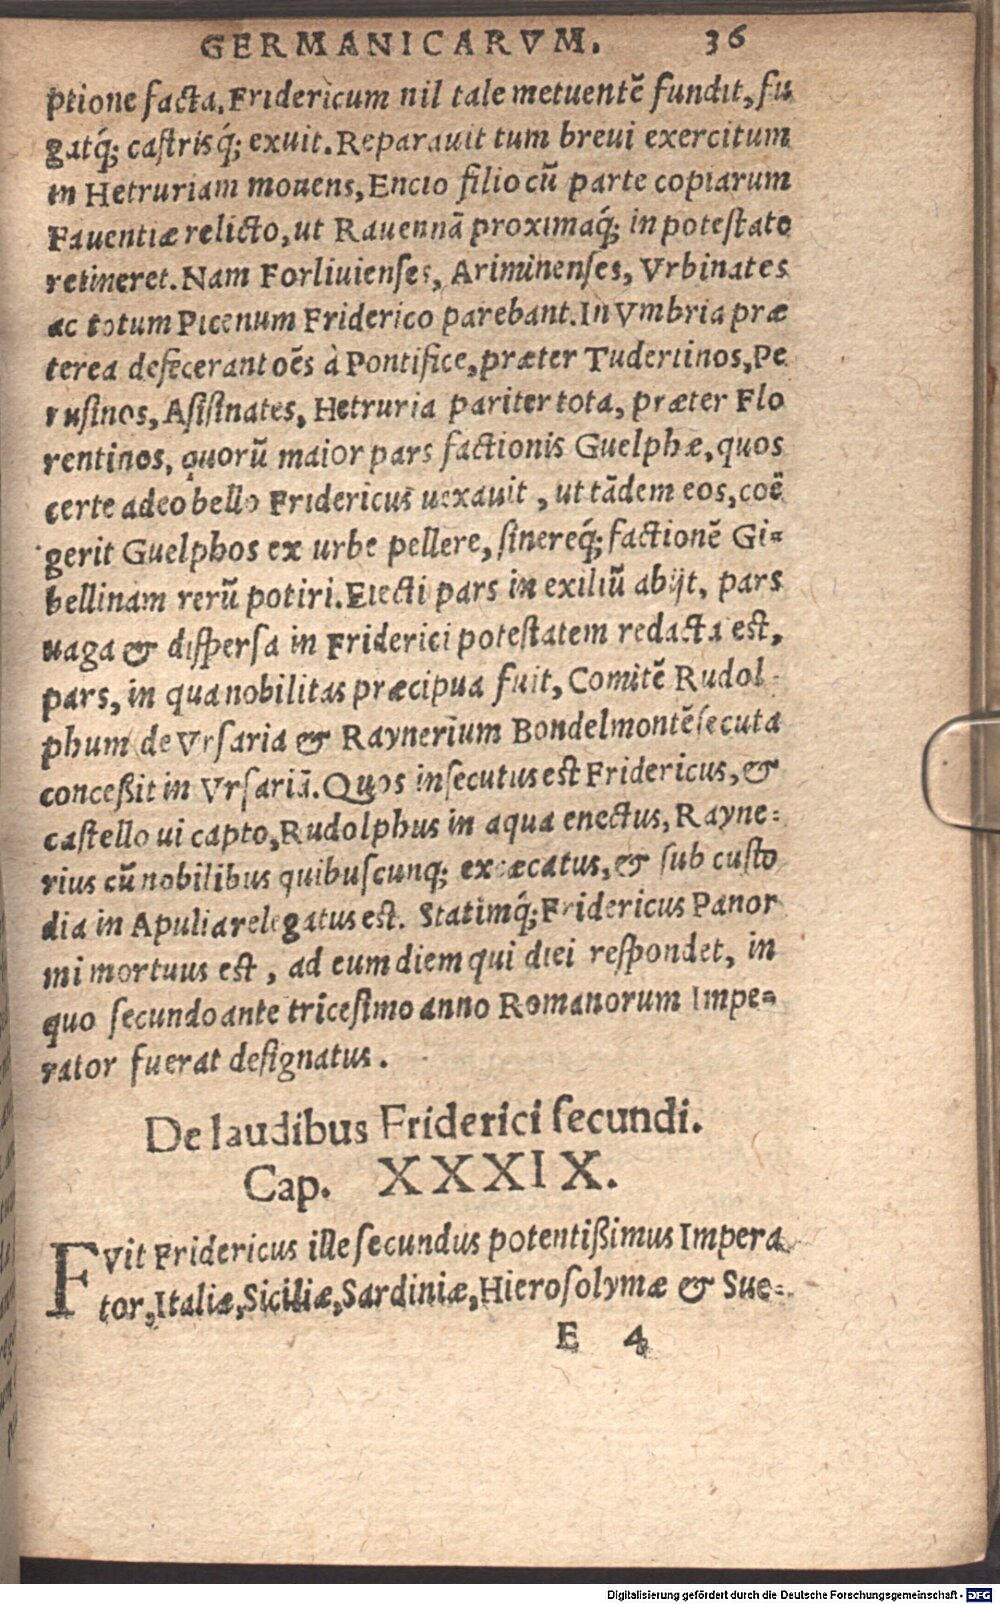 GERMANICARVM. 36
ptione facta, Fridericum nil tale metuentē fundit, fu
gatq́; castrisq́; exuit. Reparauit tum breui exercitum
in Hetruriam mouens, Encio filio cū parte copiarum
Fauentiæ relicto, ut Rauennā proximaq́; in potestate
retineret. Nam Forliuienses, Ariminenses, Vrbinates
ac totum Picenum Friderico parebant. In Vmbria præ
terea defecerant oēs à Pontifice, præter Tudertinos, Pe
rusinos, Asisinates, Hetruria pariter tota, præter Flo
rentinos, quorū maior pars factionis Guelphæ, quos
certe adeo bello Fridericus uexauit, ut tādem eos, coē
gerit Guelphos ex urbe pellere, sinereq́; factionē Gi=
bellinam rerū potiri. Eiecti pars in exiliū abijt, pars
uaga & dispersa in Friderici potestatem redacta est,
pars, in qua nobilitas præcipua fuit, Comitē Rudol=
phum de Vrsaria & Raynerium Bondelmontē secuta
conceßit in Vrsariā. Quos insecutus est Fridericus, &
castello ui capto, Rudolphus in aqua enectus, Rayne=
rius cū nobilibus quibuscunq; excæcatus, & sub custo
dia in Apulia relegatus est. Statimq́; Fridericus Panor
mi mortuus est, ad eum diem qui diei respondet, in
quo secundo ante tricesimo anno Romanorum Impe=
rator fuerat designatus.
De laudibus Friderici secundi.
Cap. XXXIX.
FVit Fridericus ille secundus potentißimus Impera
tor, Italiæ, Siciliæ, Sardiniæ, Hierosolymæ & Sue=
E 4
Digitalisierung gefördert durch die Deutsche Forschungsgemeinschaft - DFG